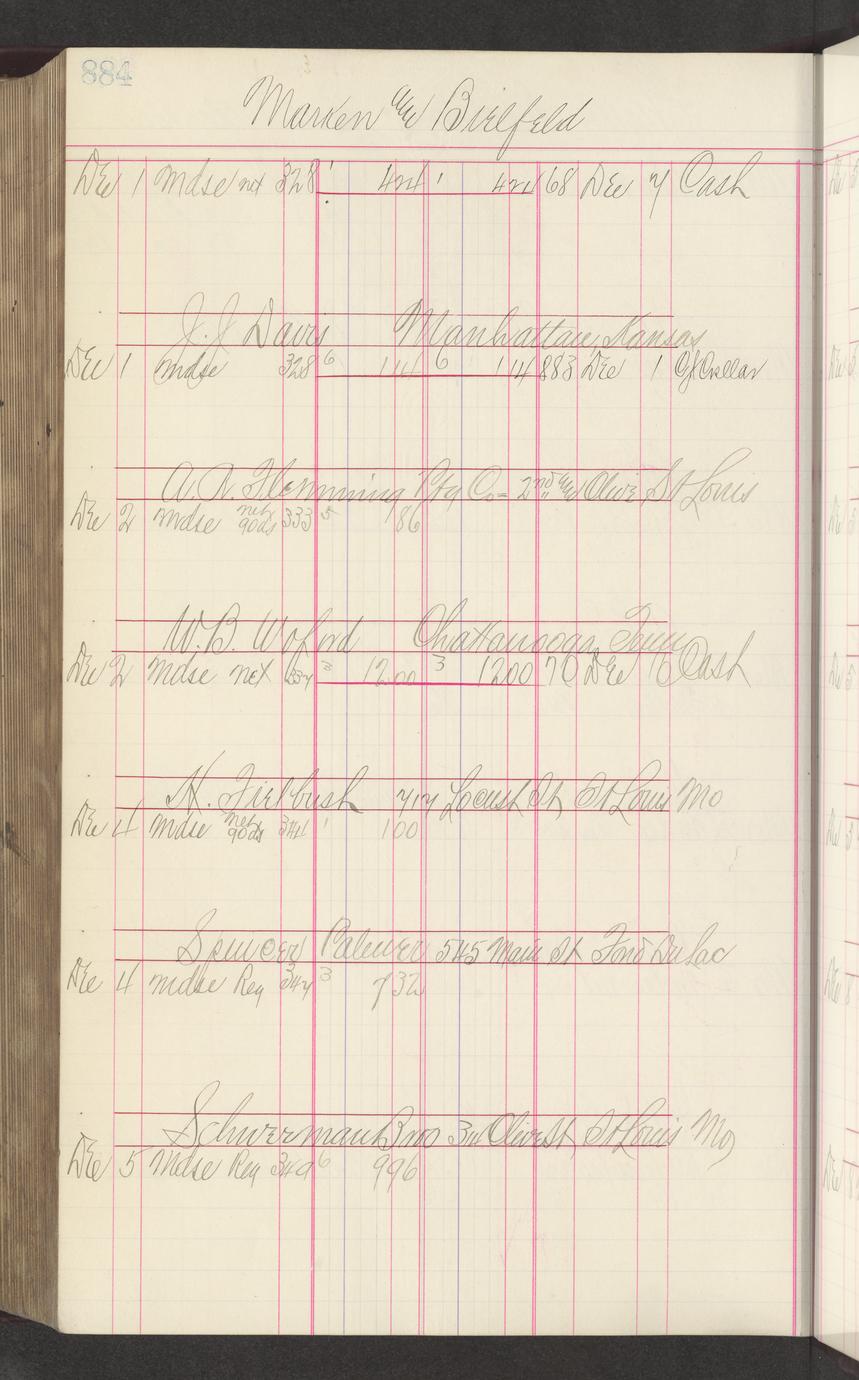 884
Marken and Bielfeld
Dec 1 Mdse net 328 1 424 1 424 68 Dec 7 Cash
J. J. Davis Manhattan, Kansas
Dec 1 Mdse 328 6 114 6 114 883 Dec 1
A. A. Flemming Ptg Co - 2nd and Olive, St Louis
Dec 2 Mdse net 90ds 333 5 186
W. B. Woford Chattanooga, Tenn
Dec 2 Mdse net 337 3 1200 3 1200 70 Dec 10 Cash
717 Locust St, St Louis Mo
Dec 4 Mdse net 90ds 344 1 100
Spencer Palmer 545 Main St Fond Du Lac
Dec 4 Mdse Reg 347 3 732
Schwerman Bros Olive St, St Louis Mo
Dec 5 Mdse Reg 349 6 996